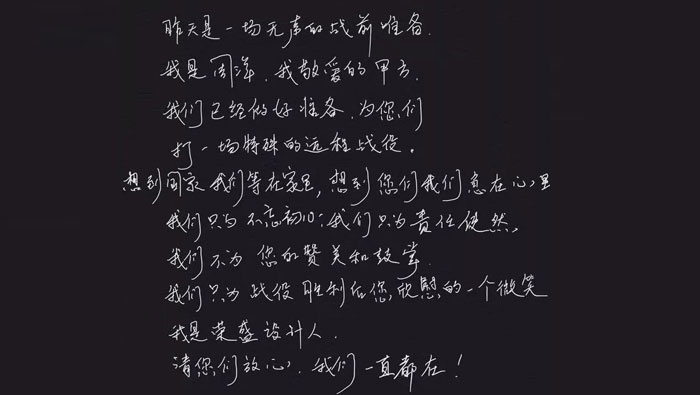 昨天是一场无声的战前准备.
我是周洋.我敬爱的甲方.
我们已经做好准备.为您们
打一场特殊的远程战役。
想到国家我们等在家里,想到您们我们急在心里
我们只为不忘初心;我们只为责任使然,
我们不为 您的赞美和鼓掌
我们只为战役胜利后您欣慰的一个微笑
我是荣盛设计人.
请您们放心.我们一直都在!